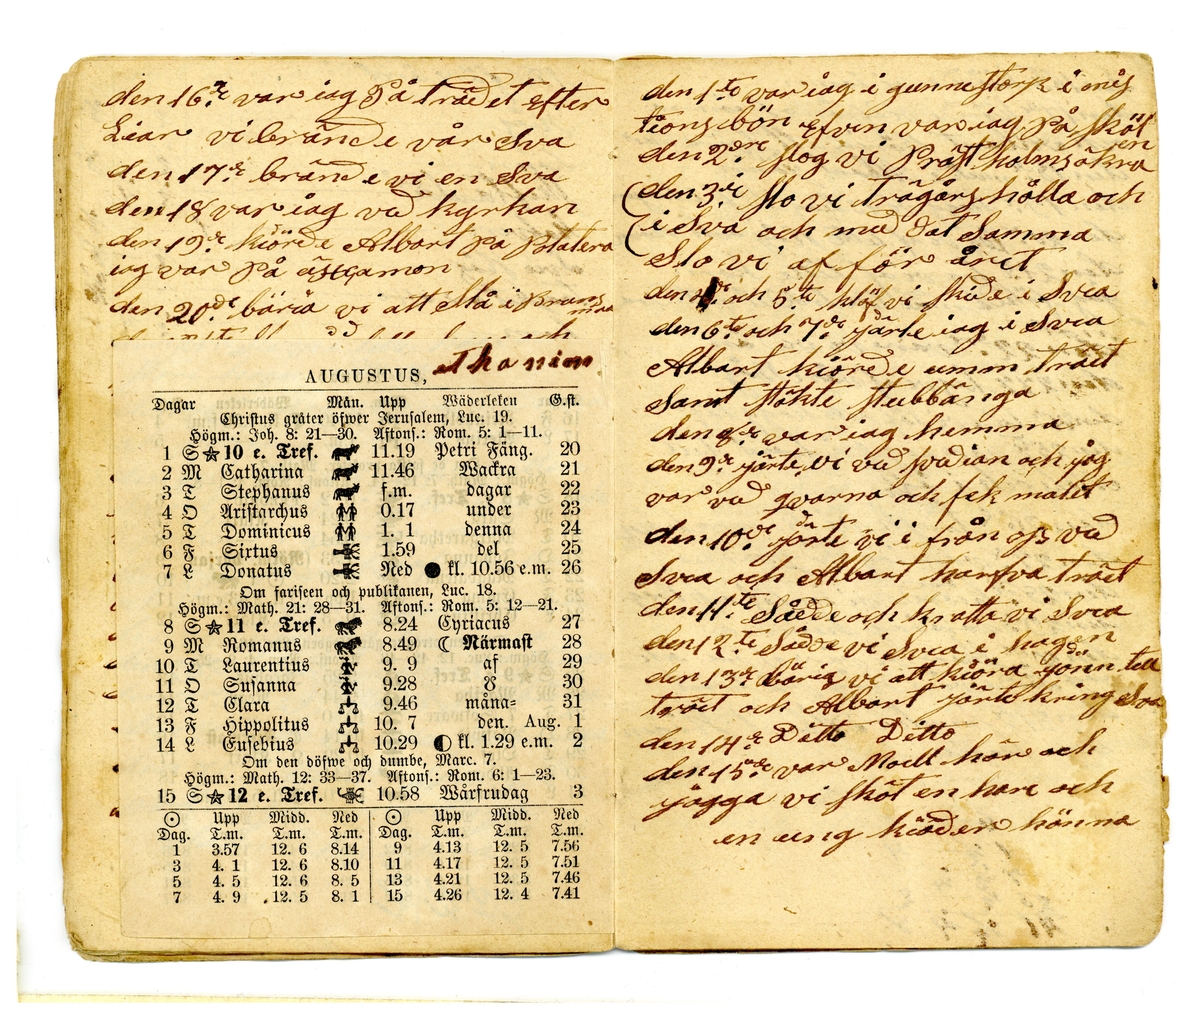 den 16de var iag på trädet efter
Liar vi brände vår Sva
den 17de brände vi en Sva
den 18 var iag vad kyrkan
den 19de kiörde Albart på Platera
iag var på
den 20de bäria vi att slå i
AUGUSTUS,
Dagar Mån. Upp Wäderleken G.st.
Christus gråter öfwer Jerusalem, Luc. 19.
Högm.: Joh. 8: 21—30. Aftons.: Rom. 5: 1—11.
1 S ☆ 10 e. Tref. 11.19 Petri Fäng. 20
2 M Catharina 11.46 Wackra 21
3 T Stephanus f.m. dagar 22
4 O Aristarchus 0.17 under 23
5 T Dominicus 1. 1 denna 24
6 F Sixtus 1.59 del 25
7 L Donatus Ned ● kl. 10.56 e.m. 26
Om fariseen och publikanen, Luc. 18.
Högm.: Math. 21: 28—31. Aftons.: Rom. 5: 12—21.
8 S ☆ 11 e. Tref. 8.24 Cyriacus 27
9 M Romanus 8.49 ☾ Närmast 28
10 T Laurentius 9. 9 af 29
11 O Susanna 9.28 ☋ 30
12 T Clara 9.46 måna= 31
13 F Hippolitus 10. 7 den. Aug. 1
14 L Eusebius 10.29 ◐ kl. 1.29 e.m. 2
Om den döfwe och dumbe, Marc. 7.
Högm.: Math. 12: 33—37. Aftons.: Rom. 6: 1—23.
15 S ☆ 12 e. Tref. 10.58 Wårfrudag 3
☉ Upp Midd. Ned ☉ Upp Midd. Ned
Dag. T.m. T.m. T.m. Dag. T.m. T.m. T.m.
1 3.57 12. 6 8.14 9 4.13 12. 5 7.56
3 4. 1 12. 6 8.10 11 4.17 12. 5 7.51
5 4. 5 12. 6 8. 5 13 4.21 12. 5 7.46
7 4. 9 12. 5 8. 1 15 4.26 12. 4 7.41
den 1te var iag i gunnestorp i mis
tions bön efven var iag på sköl
en
den 2dre slog vi Präst holms åkra
den 3de slo vi trägårs hålla och
i Sva och mäd dät Samma
Slo vi af för året
den 4de och 5te klöf vi skide i Svea
den 6te och 7de järte iag i Svea
Albart kiörde umm träet
Samt stökte stubbänga
den 8de var iag hemma
den 9de järte vi vad svedian och jag
var vad qvarna och fek malet
den 10de järte vi i från oss vad
Svea och Albart harfva träet
den 11te Sådde och kratta vi Svea
den 12te Sådde vi Svea i hagen
den 13de bäria vi att kiöra jönn till
träet och Albart järte kring Sva
den 14de Ditto Ditto
den 15de var Moll här och
jägga vi sköt en hare och
en ung kiäder hönna